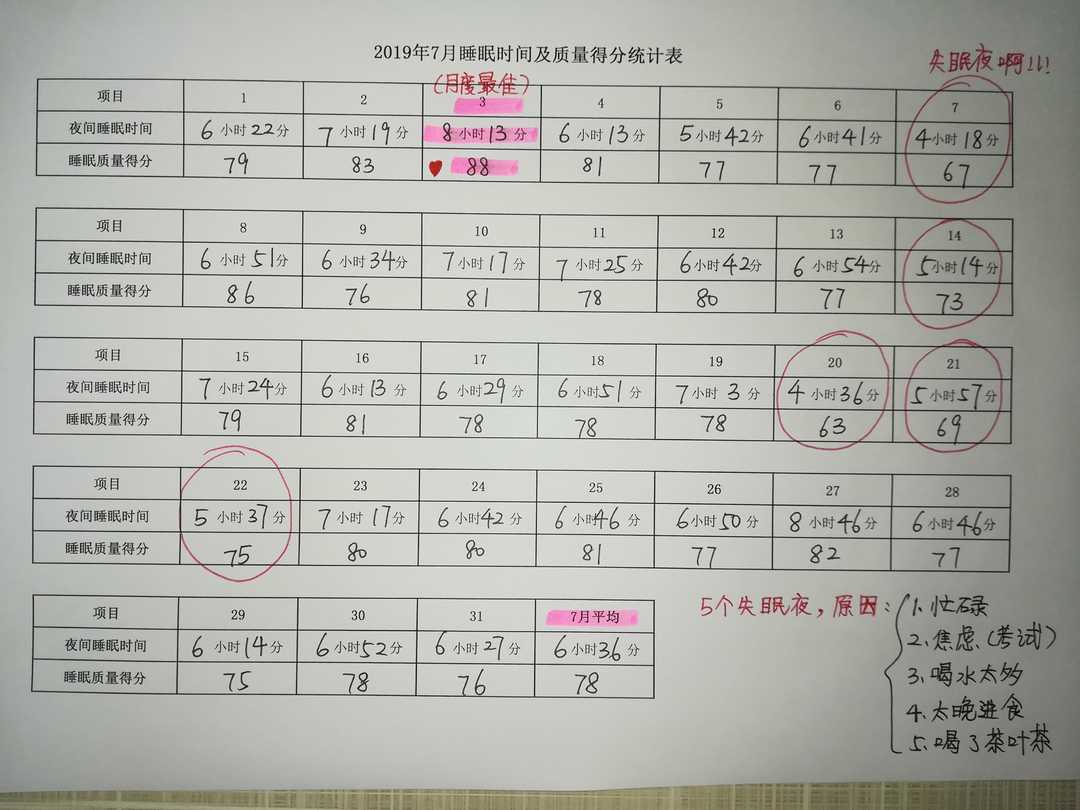 2019年7月睡眠时间及质量得分统计表
失眠夜啊!!!
(月度最佳)
项目 1 2 3 4 5 6 7
夜间睡眠时间 6小时22分 7小时19分 8小时13分 6小时13分 5小时42分 6小时41分 4小时18分
睡眠质量得分 79 83 88 81 77 77 67
项目 8 9 10 11 12 13 14
夜间睡眠时间 6小时51分 6小时34分 7小时17分 7小时25分 6小时42分 6小时54分 5小时14分
睡眠质量得分 86 76 81 78 80 77 73
项目 15 16 17 18 19 20 21
夜间睡眠时间 7小时24分 6小时13分 6小时29分 6小时51分 7小时3分 4小时36分 5小时57分
睡眠质量得分 79 81 78 78 78 63 69
项目 22 23 24 25 26 27 28
夜间睡眠时间 5小时37分 7小时17分 6小时42分 6小时46分 6小时50分 8小时46分 6小时46分
睡眠质量得分 75 80 80 81 77 82 77
项目 29 30 31 7月平均
夜间睡眠时间 6小时14分 6小时52分 6小时27分 6小时36分
睡眠质量得分 75 78 76 78
5个失眠夜，原因：
1、忙碌
2、焦虑(考试)
3、喝水太多
4、太晚进食
5、喝了茶叶茶